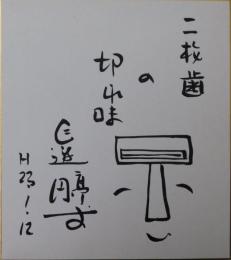 二枚歯
の
切れ味
三遊亭
H23.1.12